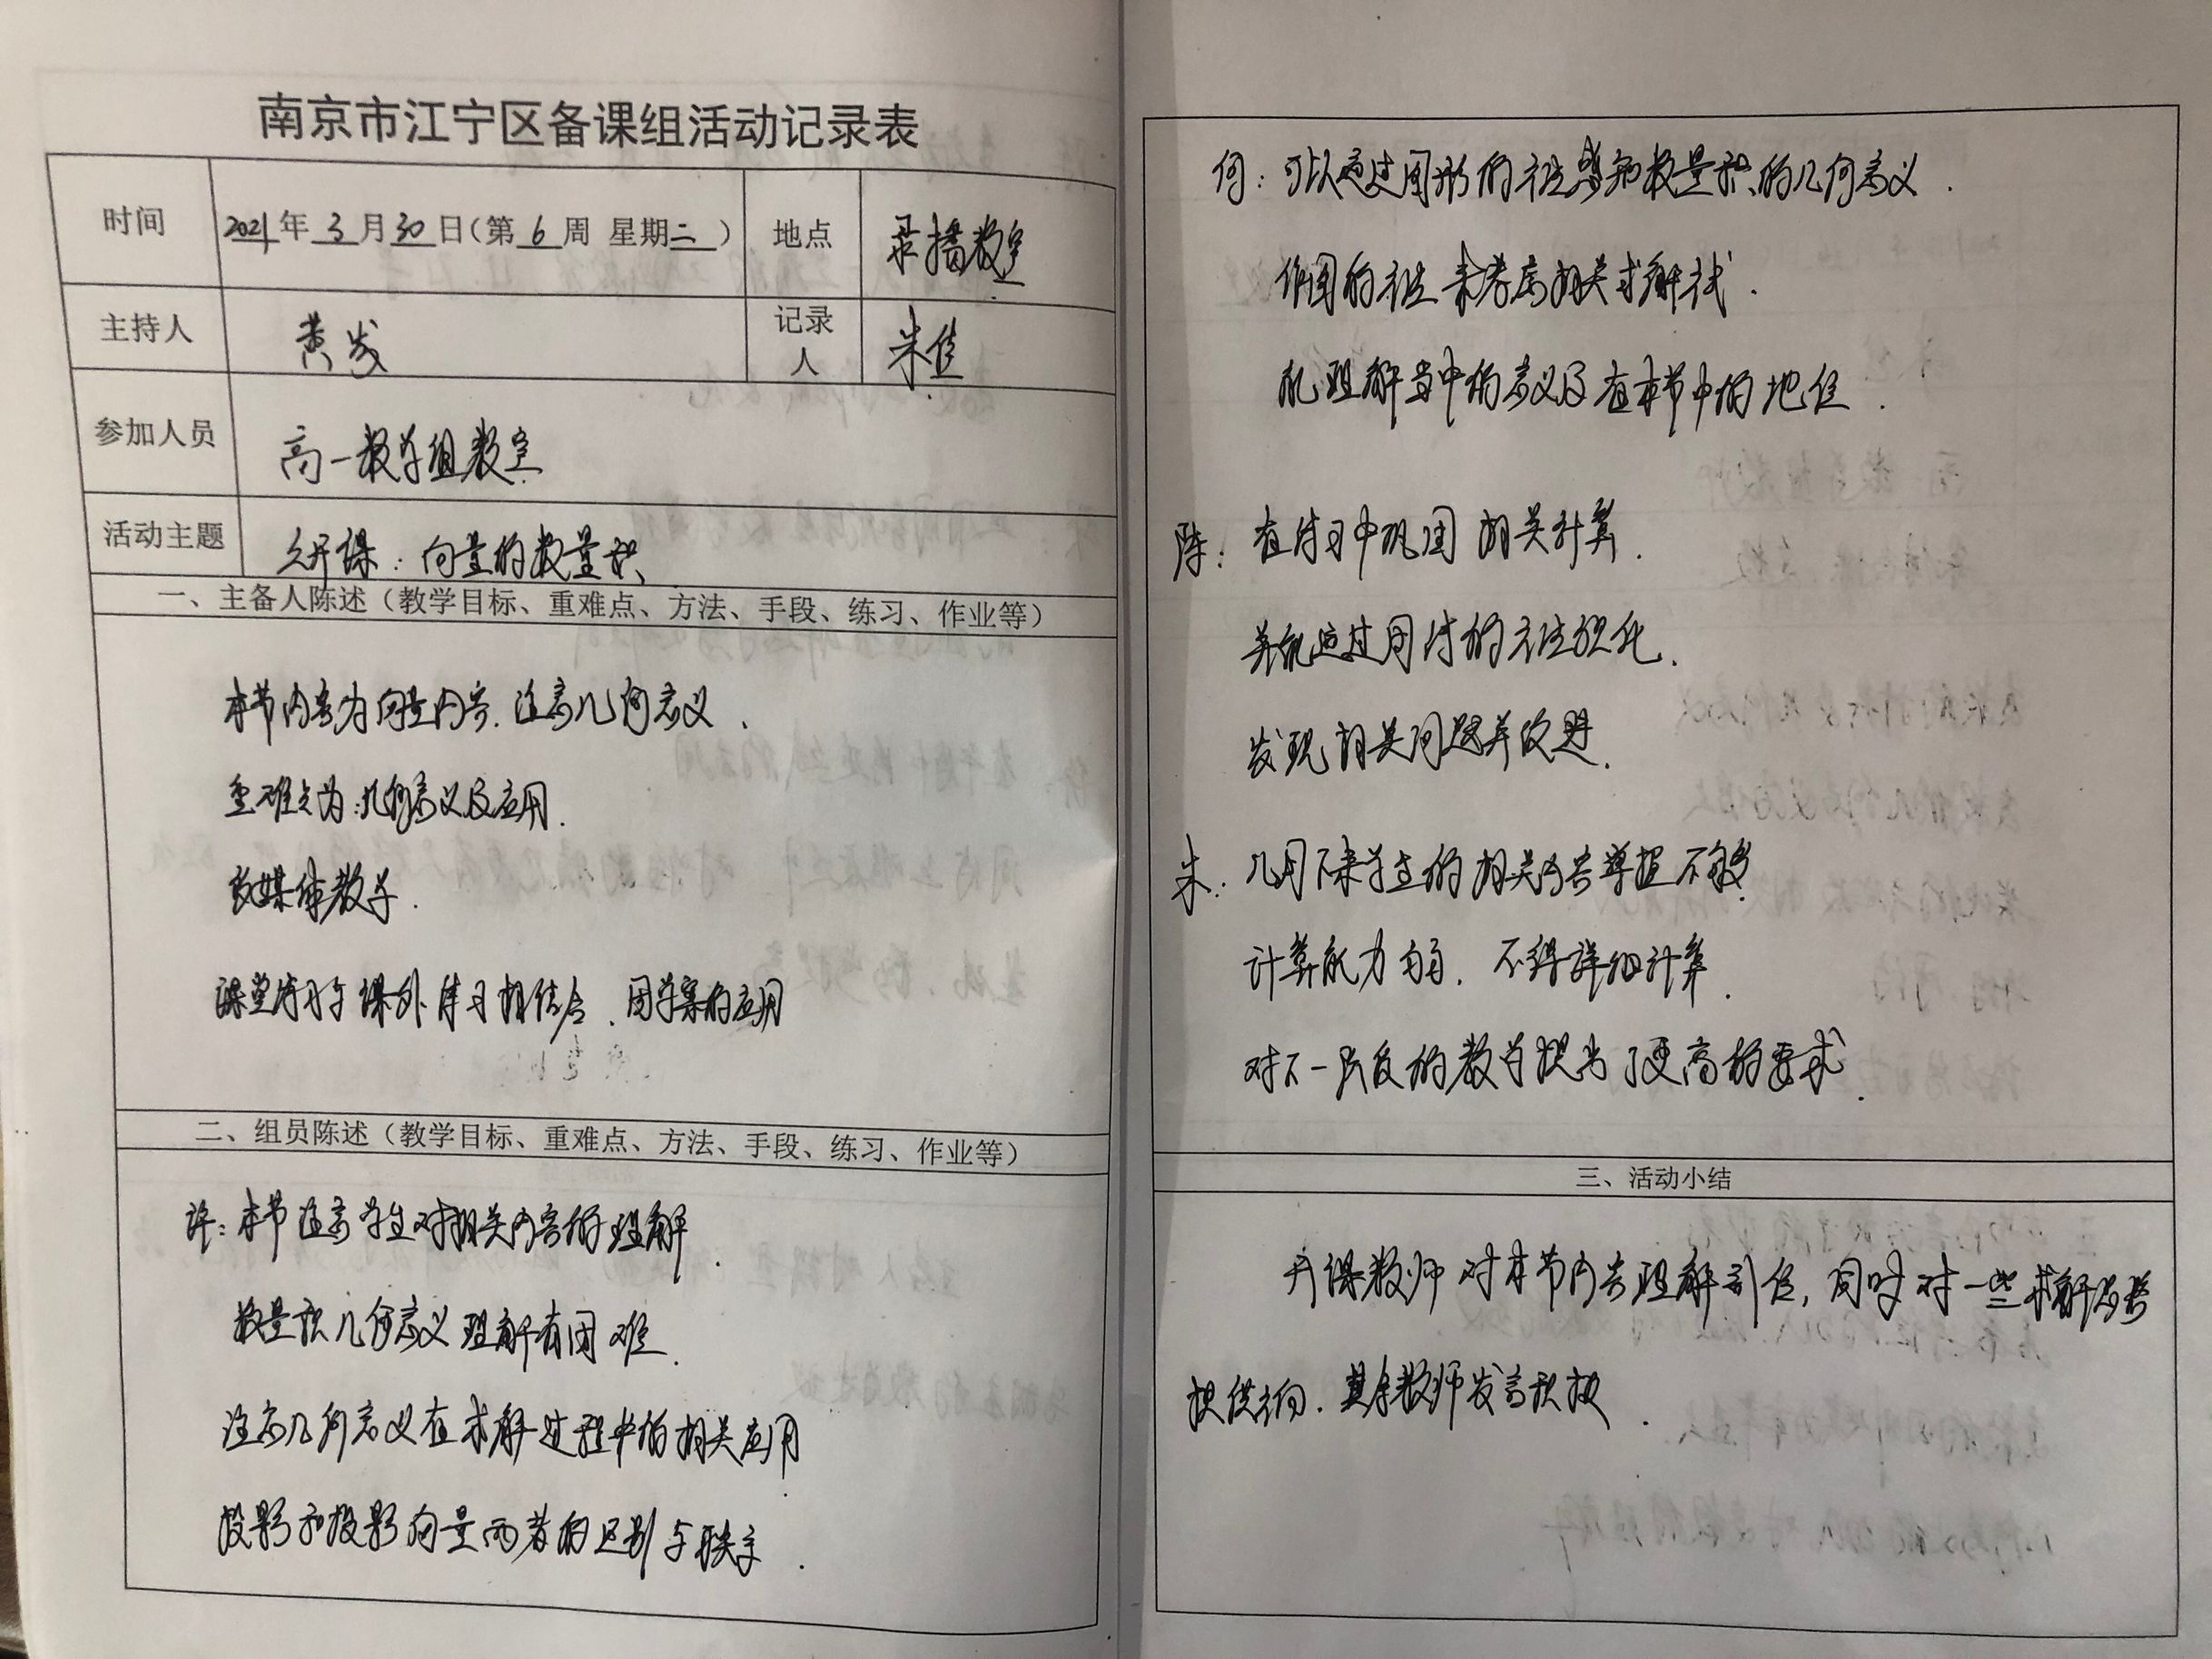 南京市江宁区备课组活动记录表
时间 2021年3月30日(第6周 星期二) 地点 录播教室
主持人 黄发 记录人 朱佳
参加人员 高一数学组教室
活动主题 公开课：向量的数量积
一、主备人陈述（教学目标、重难点、方法、手段、练习、作业等）
本节内容为向量内容.注意几何意义.
重难点为:几何意义及应用.
多媒体教学.
课堂练习与课外练习相结合.用学案的应用
二、组员陈述（教学目标、重难点、方法、手段、练习、作业等）
许:本节注意学生对相关内容的理解.
数量积几何意义理解有困难.
注意几何意义在求解过程中的相关应用.
投影和投影向量两者的区别与联系.
何:可以通过图形的方法感知数量积的几何意义.
作图的方法来考虑相关求解试.
理解当中的意义及在本节中的地位.
陈:在练习中巩固相关计算.
并能通过周练的方法强化.
发现相关问题并改进.
朱:几周下来学生的相关内容掌握不够.
计算能力弱.不得详细计算.
对下一阶段的教学提出了更高的要求.
三、活动小结
开课教师对本节内容理解到位,同时对一些求解思考
提供方向.其余教师发言积极.